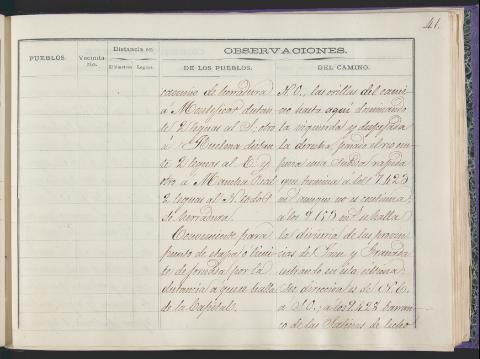 41.
PUEBLOS.
Vecindario.
Distancia en
Kilómetros Leguas.
OBSERVACIONES.
DE LOS PUEBLOS.
DEL CAMINO.
camino de herradura
á Montejicar distan
te 2 leguas al S; otro
á Huelma distan
te 2 leguas al E. y
otro a Mancha Real
2 leguas al N. todos
de herradura.
Conveniente para
punto de etapa ó limi
te de jornada por la
distancia a que se halla
de la Capital.
N.O., las orillas del cami
no hasta aquí dominando
la izquierda y despejada
la derecha, pasado el rio em
pieza una subida rapida
que termina a los 7423
m. aunque no se continua;
a los 9153 m. se halla
la divisoria de las provin
cias de Jaen y Granada
entrando en esta ultima.
Su direccion es de N.E.
á S.O.; a los 9.423 barran
co de las Salinas de lecho